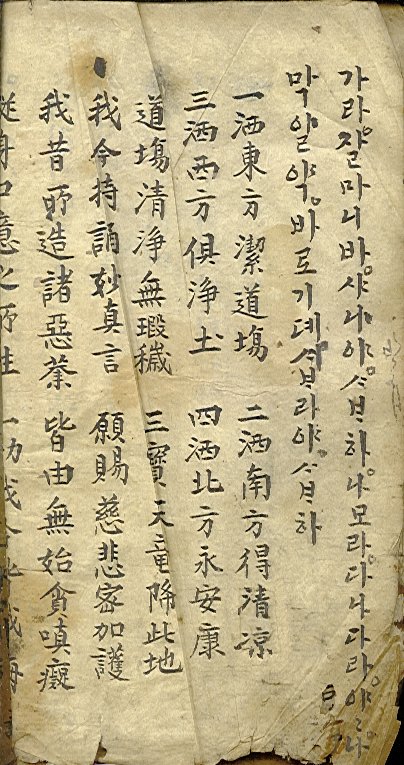 가라。쟐마니바。샤나야。ᄉᆞᄇᆞ하。나모라。다나다라。야〻나
막알약。바로기뎨ᄉᆞᄇᆞ라야ᄉᆞᄇᆞ하
一洒東方潔道塲 二洒南方得清凉
三洒西方俱淨土 四洒北方永安康
道塲清淨無瑕穢 三寶天竜降此地
我今持誦玅真言 願賜慈悲宻加護
我昔所造諸惡業 皆由無始貪嗔癡
從身口意之所生 一切我今